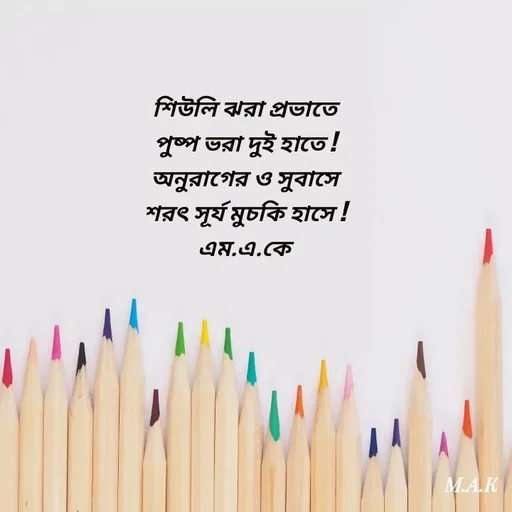 শিউলি ঝরা প্রভাতে
পুষ্প ভরা দুই হাতে !
অনুরাগের ও সুবাসে
শরৎ সূর্য মুচকি হাসে !
এম.এ.কে
M.A.K